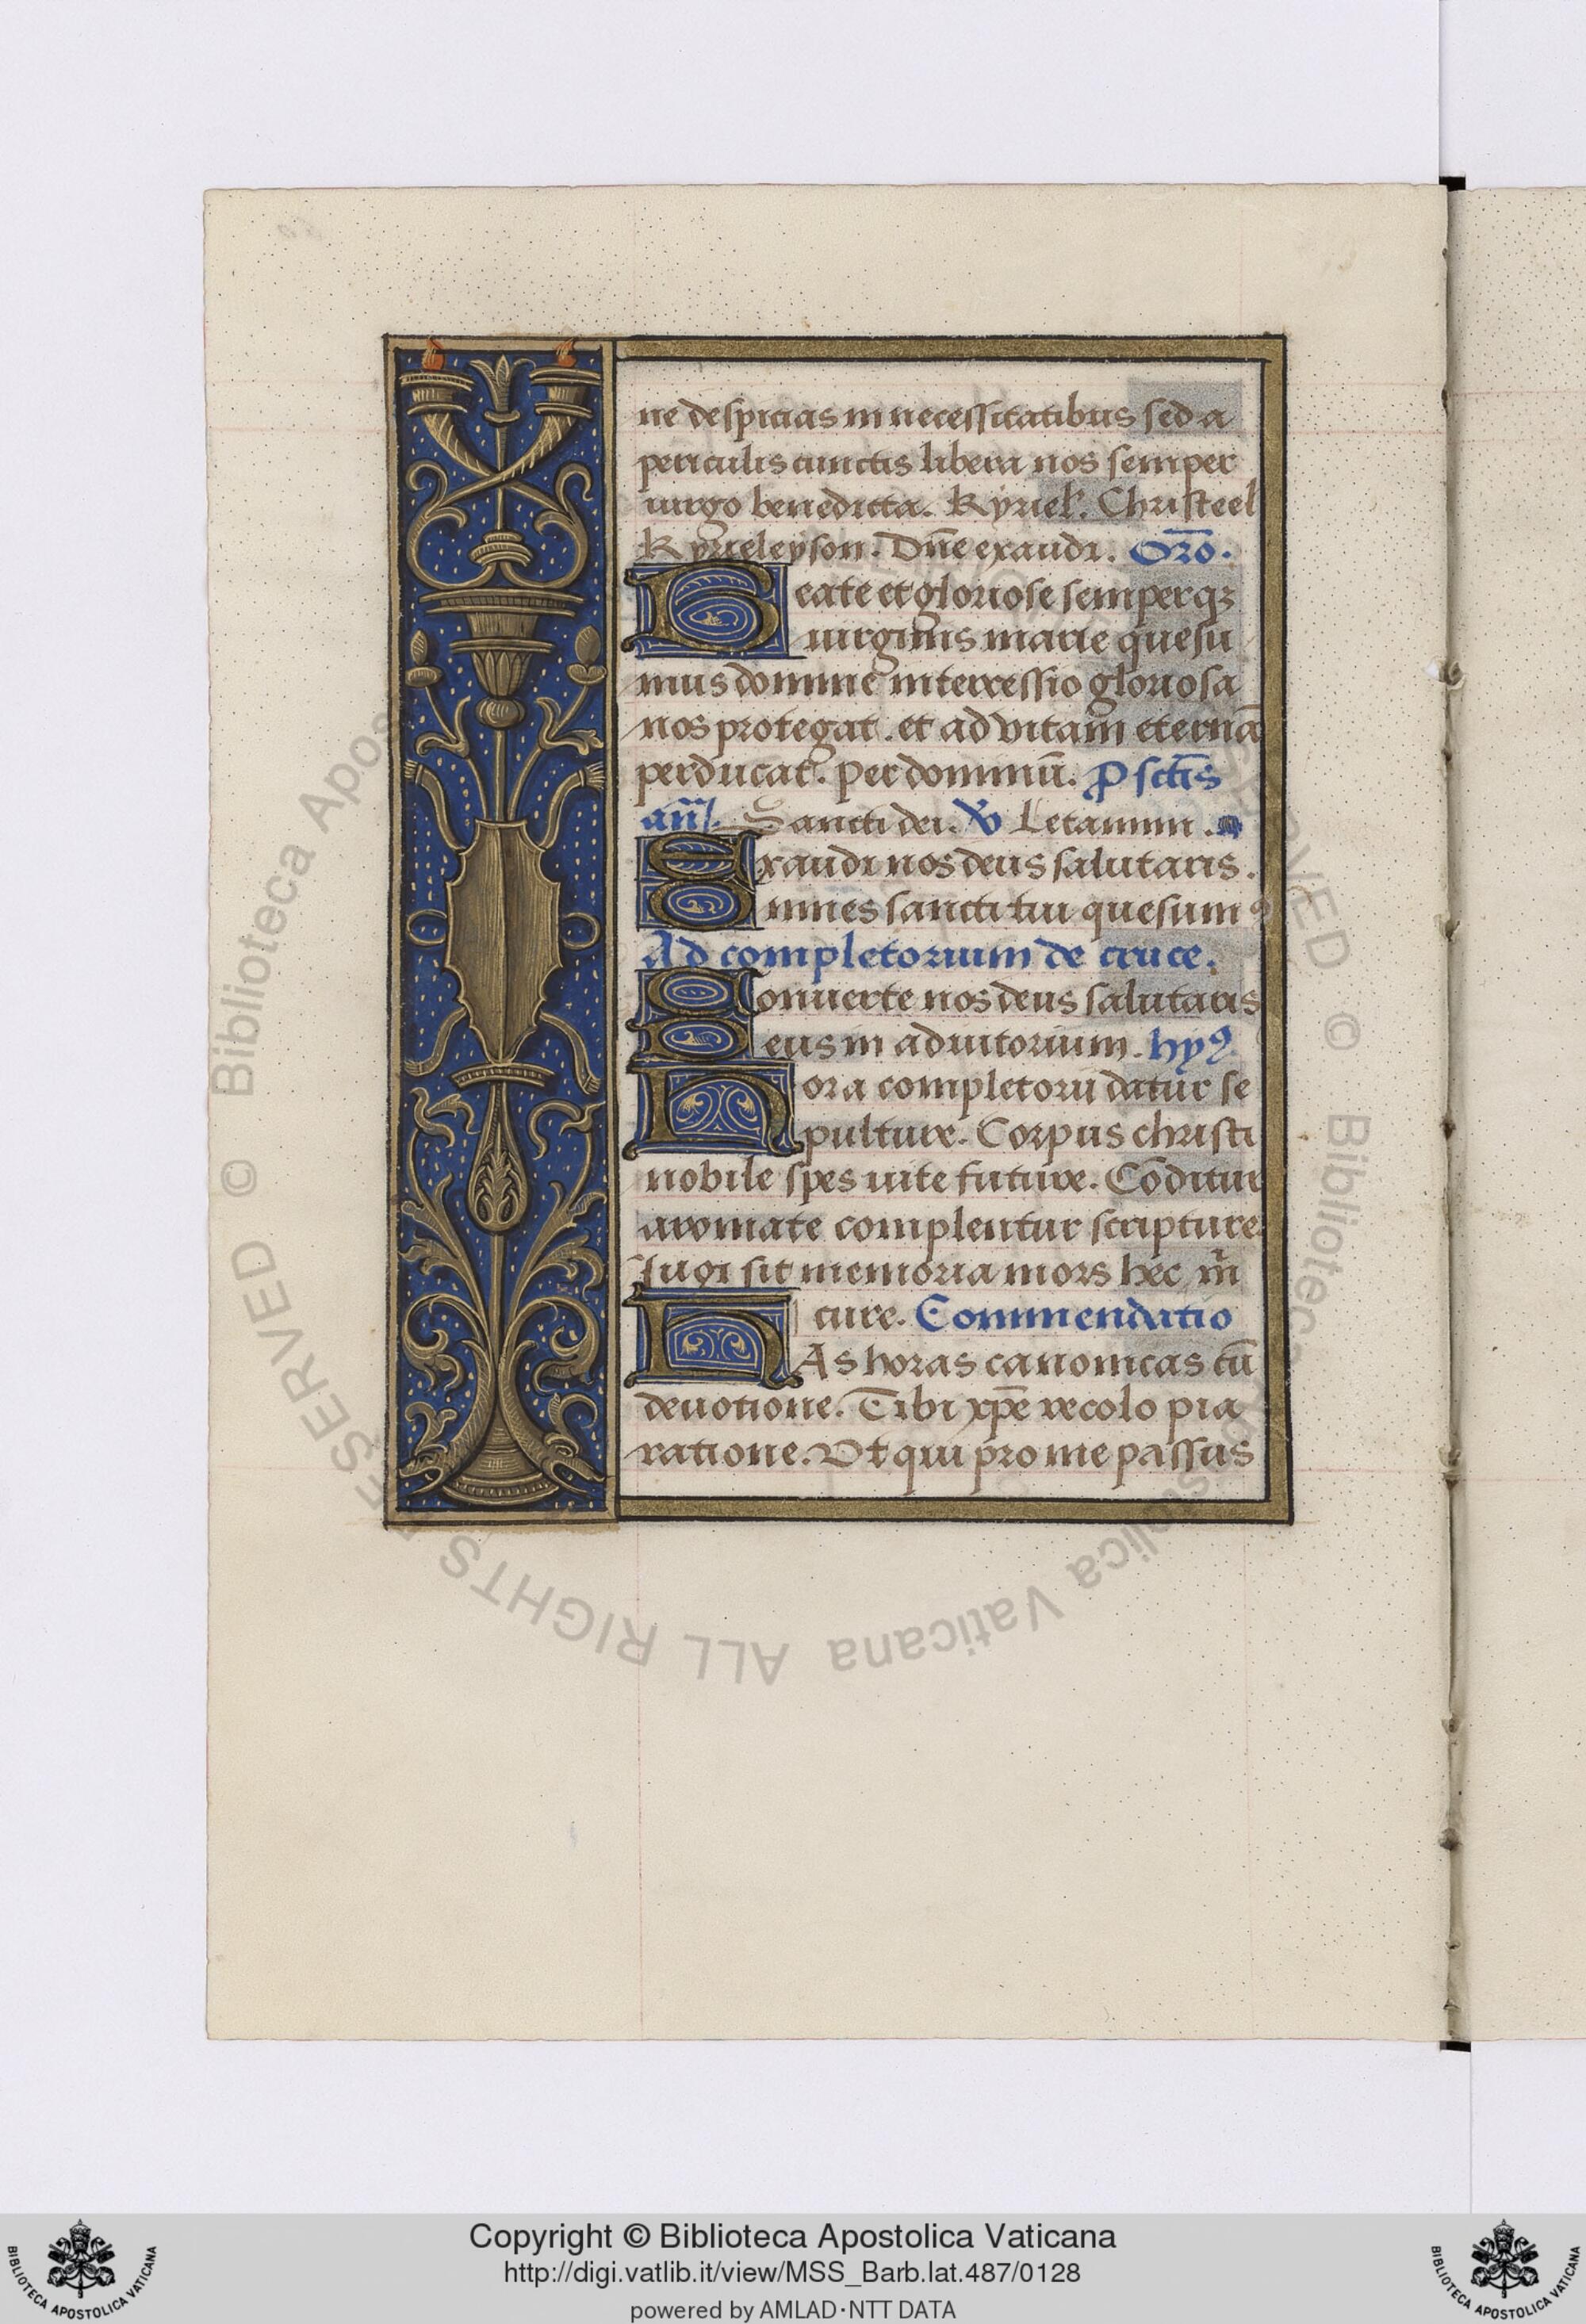 ne despicias in necessitatibus sed a
periculis cunctis libera nos semper
uirgo benedicta. Kyriel'. Christeel
Kyrieleyson. Dn̄e exaudi. Orō.
Beate et gloriose semperqꝫ
uirginis marie quesu
mus domine intercessio gloriosa
nos protegat. et ad vitam eternā
perducat. Per dominū. P sctīs
an̄. Sancti dei. ℣ Letamini.
Exaudi nos deus salutaris.
Omnes sancti tui quesumꝰ
Ad completorium de cruce.
Conuerte nos deus salutaris
Deus in adiutorium. hyꝰ
Hora completorii datur se
pulture. Corpus christi
nobile spes uite future. Cōditur
aromate complentur scripture
Iugi sit memoria mors hec m̄
cure. Commendatio
HAs horas canonicas cū
deuotione. Tibi xp̄e recolo pia
ratione. Vt qui pro me passus
© Biblioteca Apostolica Vaticana ALL RIGHTS RESERVED
Copyright © Biblioteca Apostolica Vaticana
http://digi.vatlib.it/view/MSS_Barb.lat.487/0128
powered by AMLAD·NTT DATA
BIBLIOTECA APOSTOLICA VATICANA
BIBLIOTECA APOSTOLICA VATICANA